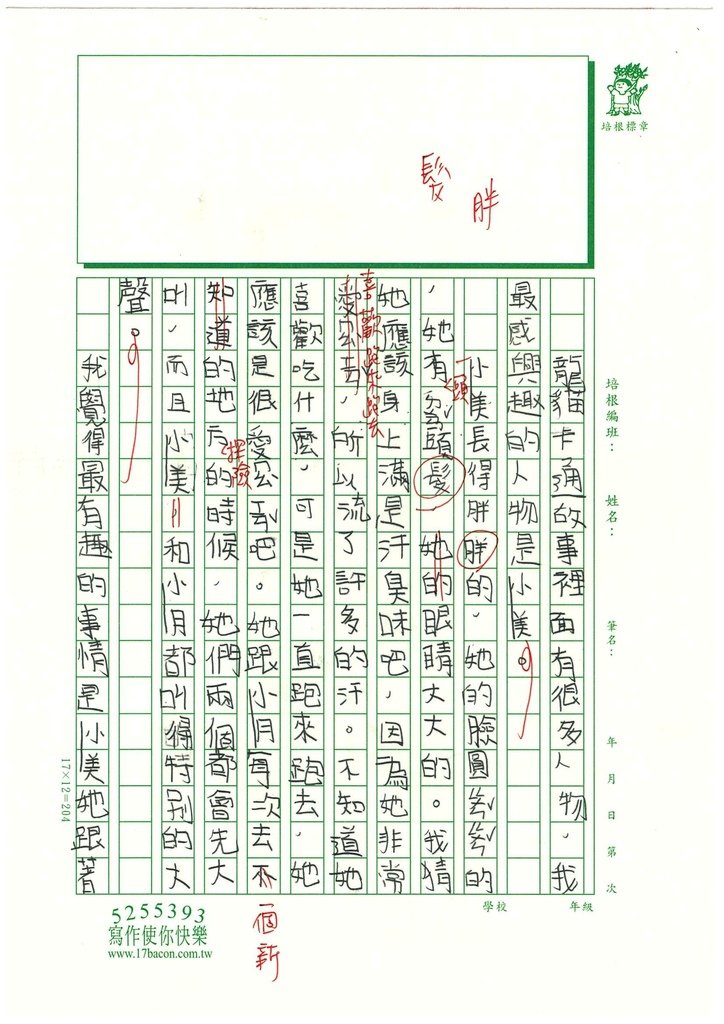 培根標章
髮
胖
培根編班：
姓名：
筆名：
年 月 日 第 次
學校
年級
龍貓卡通故事裡面有很多人物，我
最感興趣的人物是小美。
小美長得胖胖的，她的臉圓ㄍㄨㄣˇㄍㄨㄣˇ的
，她有ㄍㄜˋ頭髮她的眼睛大大的。我猜
一頭
她應該身上滿是汗臭味吧，因為她非常
喜歡跑來跑去
愛ㄍㄨㄥ去，所以流了許多的汗。不知道她
喜歡吃什麼，可是她一直跑來跑去，她
應該是很愛ㄍㄨㄥ去吧。她跟小月每次去不
一個新
知道的地方的時候，她們兩個都會先大
探險
叫，而且小美和小月都叫得特別的大
聲。
我覺得最有趣的事情是小美她跟著
17×12=204
5255393
寫作使你快樂
www.17bacon.com.tw